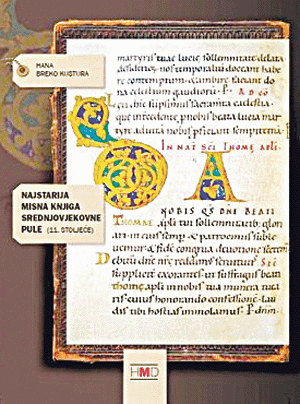 HANA
BREKO KUSTURA
NAJSTARIJA
MISNA KNJIGA
SREDNJOVJEKOVNE
PULE (11. STOLJEĆE)
martyris tuae lucie sollemnitate delata
desideriis, nos temporalia doceant habe
re contemptum, ecelumbre faciant do
na caelestium gaudiorum. P. AD CO
que incedente, p nobis beata lucia mar
tyre, aduita nobis pficiant sempiterna.
IN NAT SCI THOME APLI.
DA
NOBIS QS DNE BEATI
THOMAE apli tui sollemnitatib; glori
ari. ut eius semp & patrociniis suble
uemur & fide congrua deuotione sectem
Debitum dne nre reddimus seruitutis
suppliciter exorantes, ut suffragiis beati
thome apli in nobis tua munera tuea
ris. cuius honorando confessione lau
dis tibi hostias immolamus. P dnm.
HMD